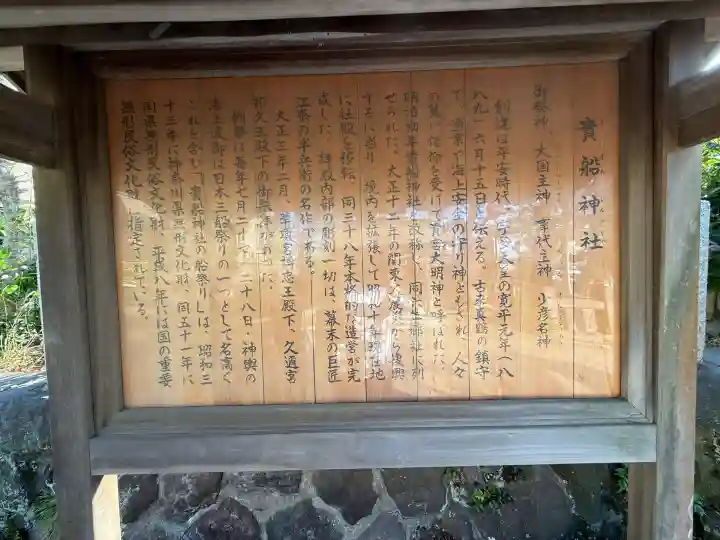 貴船神社
御祭神、大国主神 事代主神 少彦名神
創建は平安時代、宇多天皇の寛平元年(八
八九)六月十五日と伝える。古来真鶴の鎮守
で、漁業や海上安全の守り神ともされ、人々
の篤い信仰を受けて貴宮大明神と呼ばれた。
明治初年貴船神社と改称し、同
せられた。大正十二年の関東大震災から復興
するに当り、境内を拡張して昭和十年現在地
に社殿を移転、同三十八年本格的な造営が完
成した。拝殿内部の彫刻一切は、幕末の巨匠
の名作である。
大正三年二月、華頂宮博忠王殿下、久邇宮
邦久王殿下の御参拝があった。
例祭は毎年七月二十七、二十八日、神輿の
海上渡御は日本三船祭りの一つとして名高く
これを含む「貴船神社の船祭り」は、昭和三
十三年に神奈川県無形文化財、同五十一年に
同県無形民俗文化財、平成八年には国の重要
無形民俗文化財に指定されている。